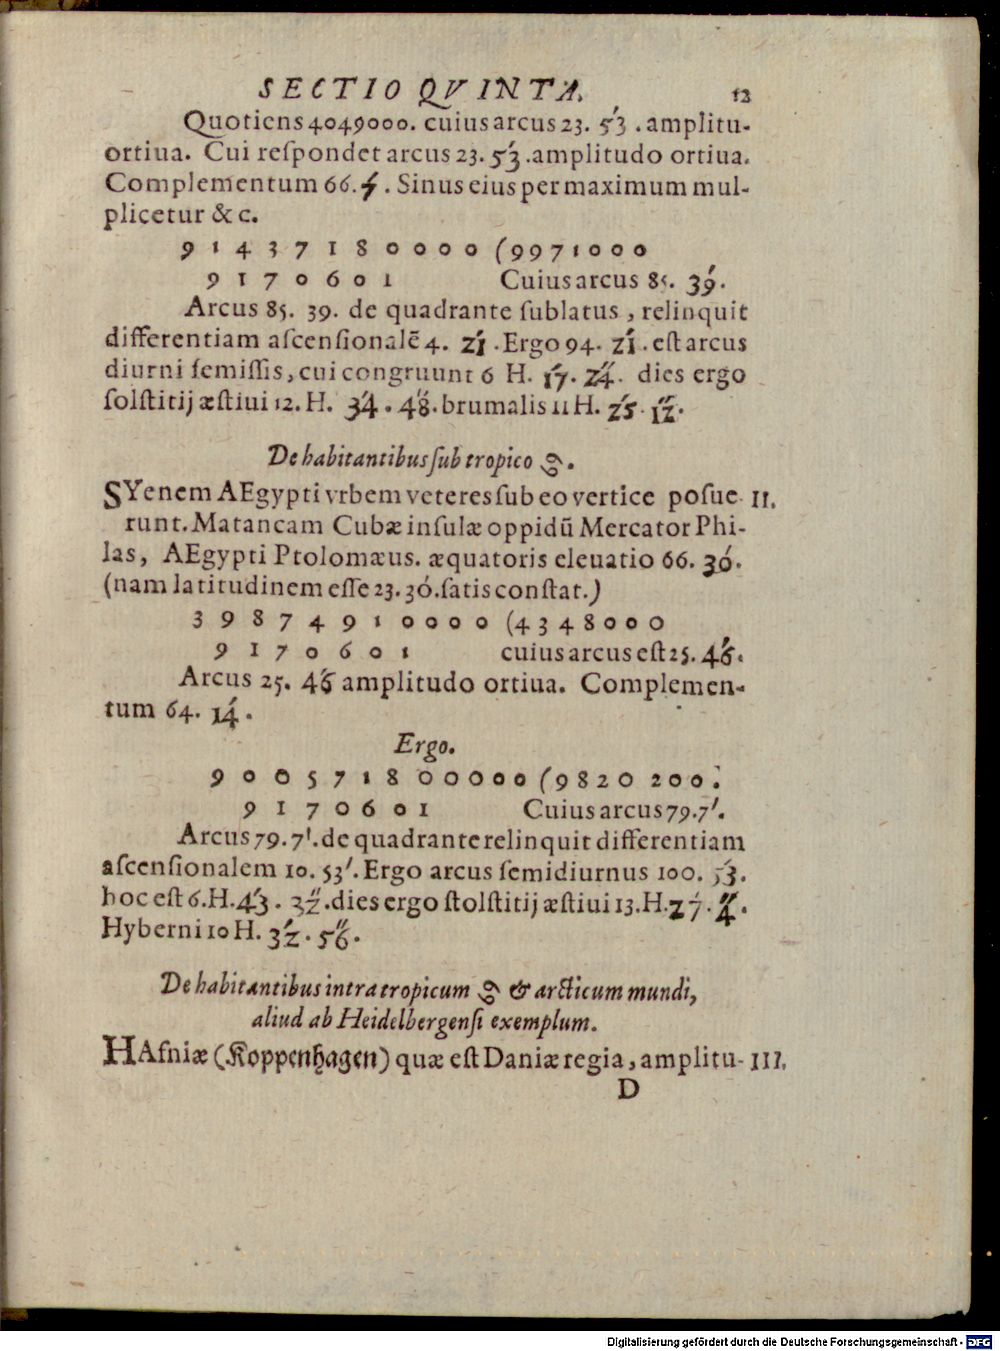 SECTIO QVINTA. 12
Quotiens 4049000. cuius arcus 23. 53́. amplitu-
ortiua. Cui reſpondet arcus 23. 53́. amplitudo ortiua.
Complementum 66. 7́. Sinus eius per maximum mul-
plicetur & c.
9 1 4 3 7 1 8 0 0 0 0 (9971000
9 1 7 0 6 0 1 Cuius arcus 85. 39́.
Arcus 85. 39. de quadrante ſublatus, relinquit
differentiam aſcenſionalẽ 4. 21́. Ergo 94. 21́. eſt arcus
diurni ſemiſſis, cui congruunt 6 H. 17́. 24̋. dies ergo
ſolſtitij æſtiui 12. H. 34́. 48̋. brumalis 11 H. 25́. 12̋.
De habitantibus ſub tropico ♋.
SYenem AEgypti vrbem veteres ſub eo vertice poſue- II.
runt. Matancam Cubæ inſulæ oppidũ Mercator Phi-
las, AEgypti Ptolomæus. æquatoris eleuatio 66. 30́.
(nam latitudinem eſſe 23. 30́. ſatis conſtat.)
3 9 8 7 4 9 1 0 0 0 0 (4348000
9 1 7 0 6 0 1 cuius arcus eſt 25. 46́.
Arcus 25. 46́ amplitudo ortiua. Complemen-
tum 64. 14́.
Ergo.
9 0 0 5 7 1 8 0 0 0 0 0 (9820 200.
9 1 7 0 6 0 1 Cuius arcus 79. 7'.
Arcus 79. 7'. de quadrante relinquit differentiam
aſcenſionalem 10. 53'. Ergo arcus ſemidiurnus 100. 53́.
hoc eſt 6. H. 43́. 32̋. dies ergo ſtolſtitij æſtiui 13. H. 27́. 4̋.
Hyberni 10 H. 32́. 56̋.
De habitantibus intra tropicum ♋ & arcticum mundi,
aliud ab Heidelbergenſi exemplum.
HAfniæ (Koppenhagen) quæ eſt Daniæ regia, amplitu- III.
D
Digitalisierung gefördert durch die Deutsche Forschungsgemeinschaft - DFG